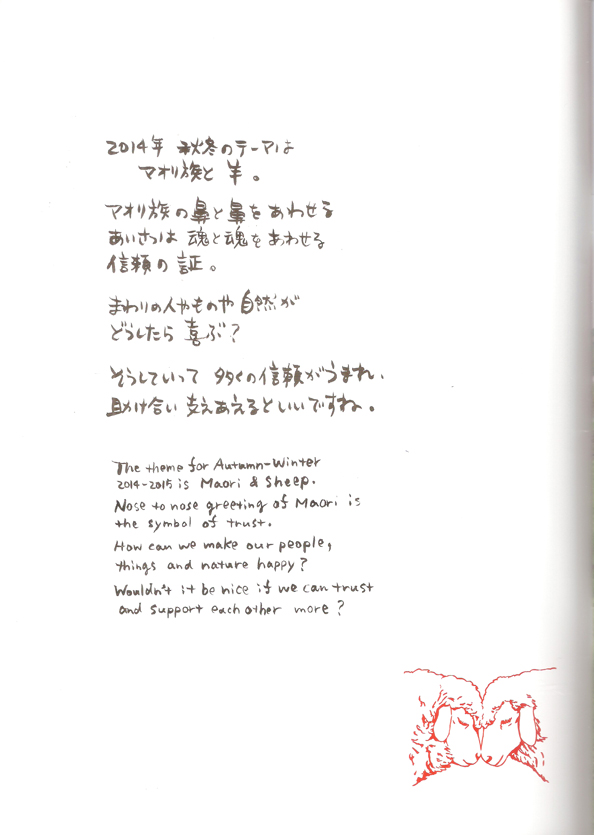 2014年 秋冬のテーマは
マオリ族と 羊。
マオリ族の鼻と鼻をあわせる
あいさつは 魂と魂をあわせる
信頼の証。
まわりの人やものや自然が
どうしたら 喜ぶ?
そうしていって 多くの信頼がうまれ、
助け合い 支えあえるといいですね。
The theme for Autumn-Winter
2014-2015 is Maori & Sheep.
Nose to nose greeting of Maori is
the symbol of trust.
How can we make our people,
things and nature happy?
Wouldn't it be nice if we can trust
and support each other more?